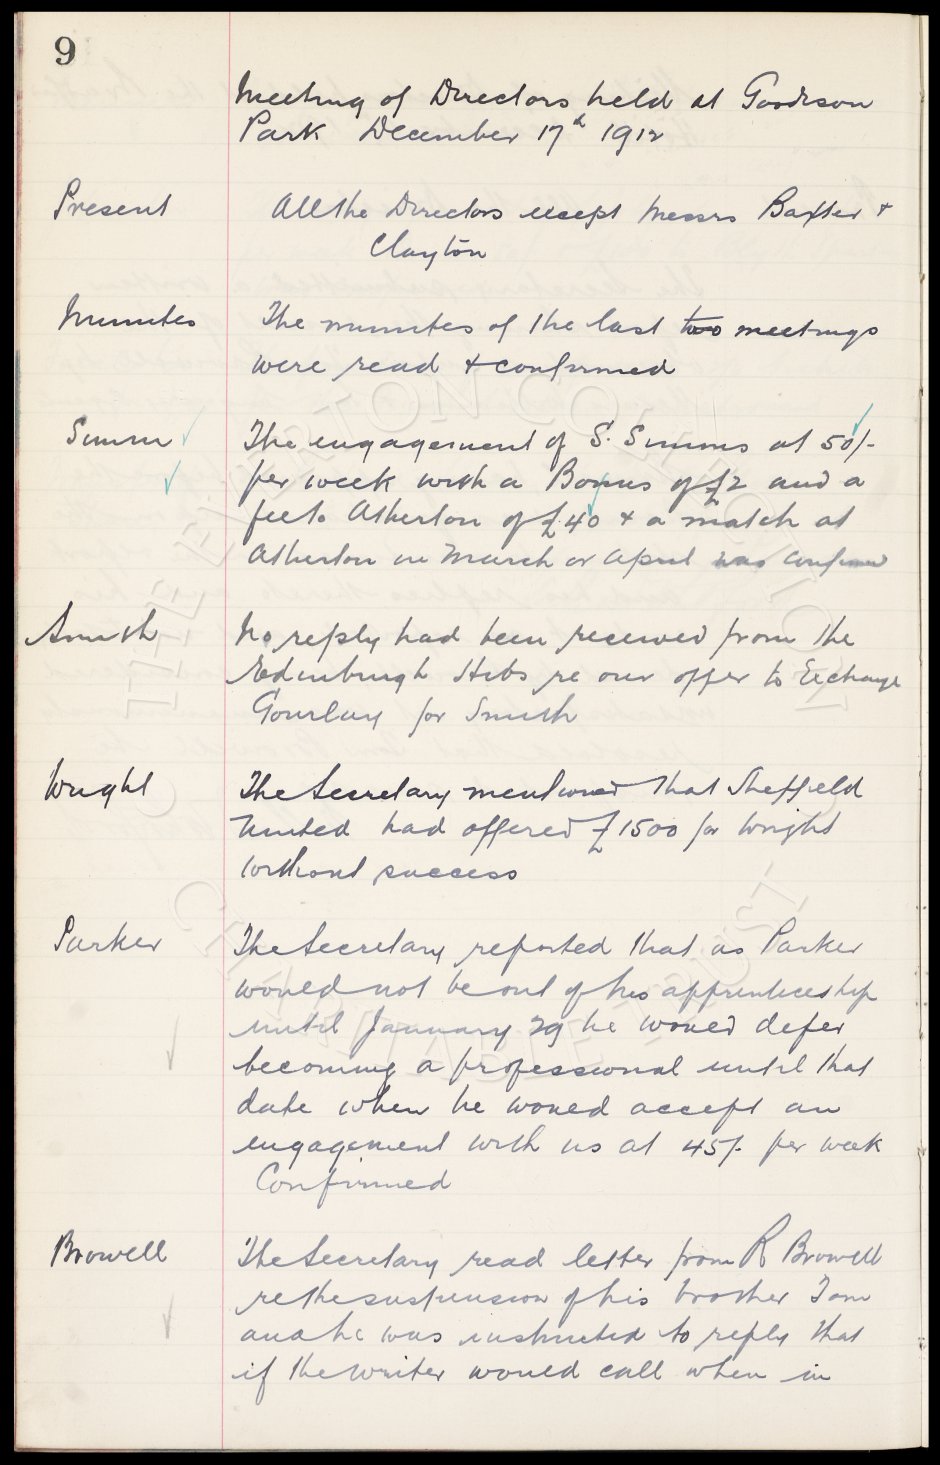 9
Meeting of Directors held at Goodison
Park December 17th 1912
Present All the Directors except Messrs Baxter +
Clayton
Minutes The minutes of the last two meetings
were read + confirmed
Simm The engagement of S. Simms at 50/-
per week with a Bonus of £2 and a
fee to Atherton of £40 + a match at
Atherton in March or April was confirmed
Smith No reply had been received from the
Edinburgh Hibs re our offer to Exchange
Gourlay for Smith
Wright The Secretary mentioned that Sheffield
United had offered £1500 for Wright
without success
Parker The Secretary reported that as Parker
would not be out of his apprenticeship
until January 29 he would defer
becoming a professional until that
date when he would accept an
engagement with us at 45/- per week
Confirmed
Browell The Secretary read letter from R Browell
re the suspension of his brother Tom
and he was instructed to reply that
if the writer would call when in
THE EVERTON COLLECTION
CHARITABLE TRUST